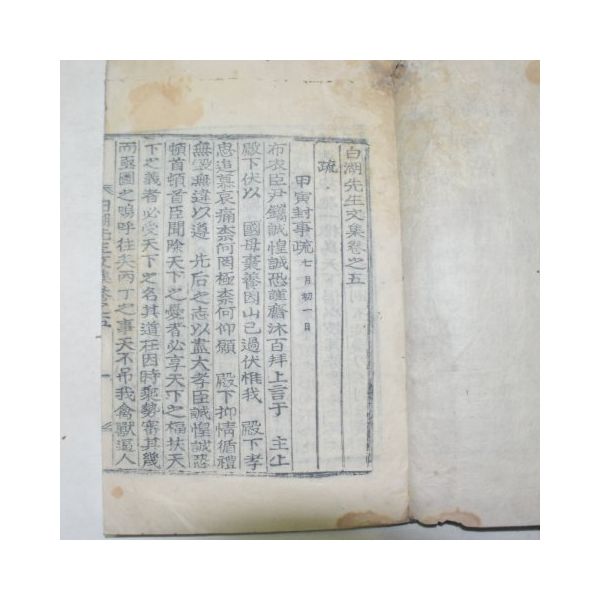 白湖先生文集卷之五
疏
甲寅封事疏 七月初一日
布衣臣尹鑴誠惶誠恐謹齋沐百拜上言于 主上
殿下伏以 國母棄養因山已過伏惟我 殿下孝
思追慕哀痛柰何罔極柰何仰願 殿下抑情循禮
無憂無違以遵 先后之志以盡大孝臣誠惶誠恐
頓首頓首臣聞除天下之憂者必享天下之福扶天
下之義者必受天下之名其道在因時乘勢審其幾
而亟圖之嗚呼往矣丙丁之事天不吊我禽獸逼人
白湖先生文集卷之五 一